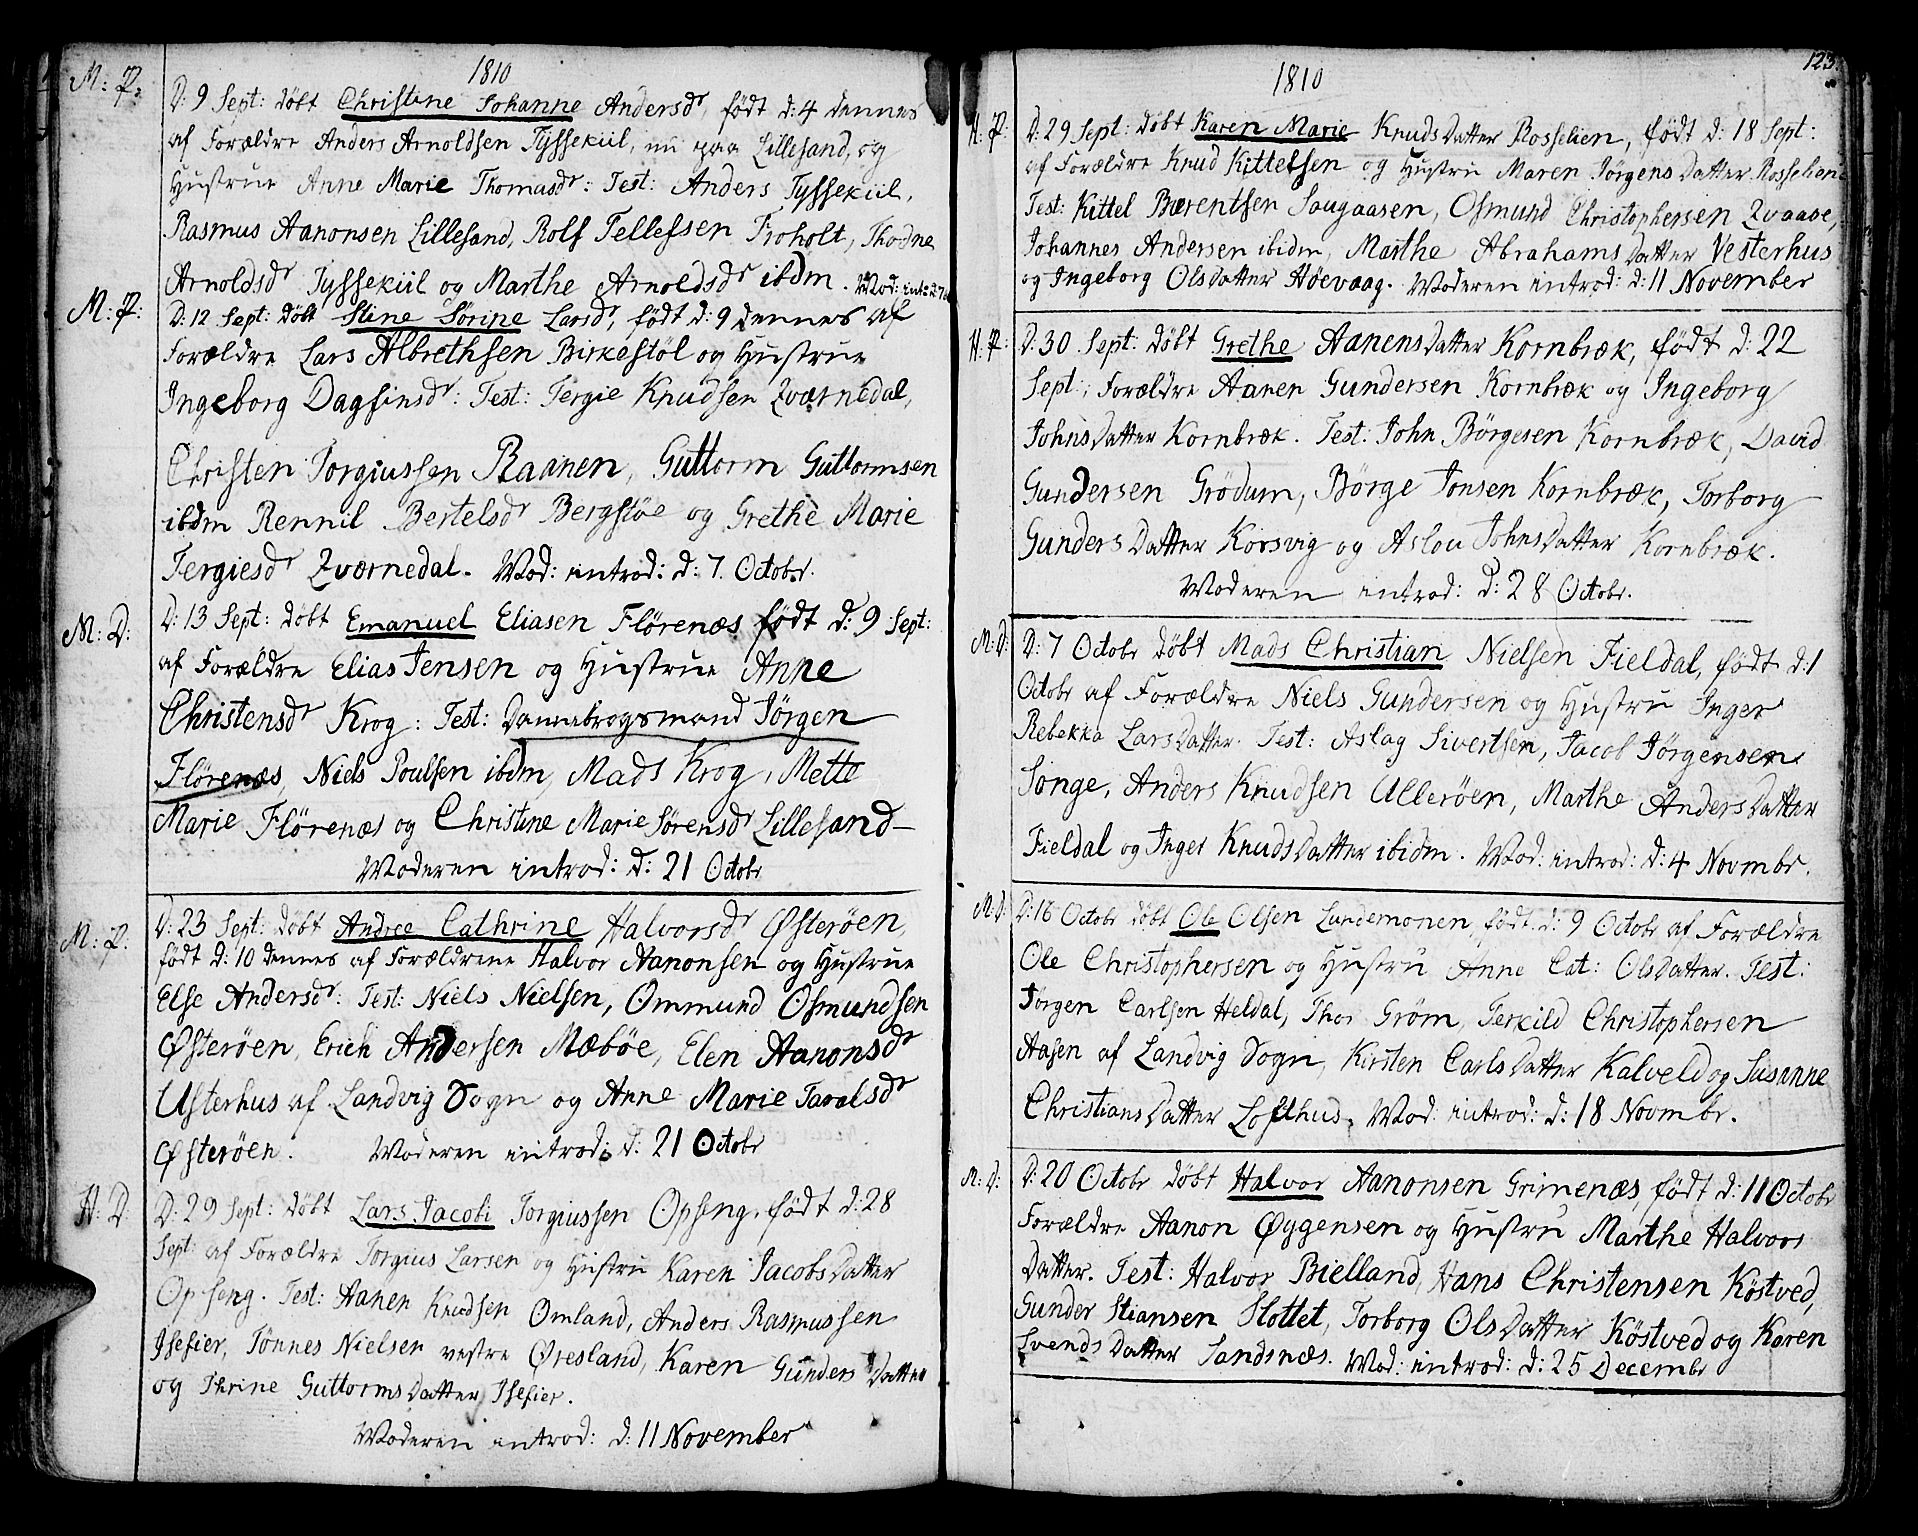 1810
M: P:
D: 9 Sept: døbt Christine Johanne Andersdr, født d: 4 dennes
af Forældre Anders Arnoldsen Tyssekiil, nu paa Lillesand, og
Hustrue Anne Marie Thomasdr: Test: Anders Tyssekiil,
Rasmus Aanonsen Lillesand, Rolf Tellefsen Froholt, Thodne
Arnoldsdr Tyssekiil og Marthe Arnoldsdr ibdm. Mod: int:
M: P:
D: 12 Sept: døbt Stine Sørine Larsdr, født d: 9 dennes af
Forældre Lars Albrethsen Birkestøl og Hustrue
Ingeborg Dagfinsdr: Test: Tergie Knudsen Qværnedal,
Christen Torgiussen Raanen, Guttorm Guttormsen
ibdm Rennil Bertelsdr Bergstøe og Grethe Marie
Tergiesdr Qværnedal. Mod: introd: d: 7. Octobr.
M: D:
D: 13 Sept: døbt Emanuel Eliasen Flørenæs født d: 9 Sept:
af Forældre Elias Jensen og Hustrue Anne
Christensdr Krog: Test: Dannabrogsmand Jörgen
Flørenæs, Niels Poulsen ibdm, Mads Krog, Mette
Marie Flørenæs og Christine Marie Sørensdr Lillesand—
Moderen introd: d: 21 Octobr
M: P.
D: 23 Sept: døbt Andree Cathrine Halvorsdr Østerøen,
født d: 10 dennes af Forældrene Halvor Aanonsen og Hustrue
Else Andersdr: Test: Niels Nielsen, Ommund Osmundsen
Østerøen, Erich Andersen Mæbøe, Elen Aanonsdr
Usterhus af Landvig Sogn og Anne Marie Taralsdr
Østerøen. Moderen introd: d: 21 Octobr
H: D
D: 29 Sept: døbt Lars Jacob Torgiussen Opseng, født d: 28
Sept: af Forældre Torgius Larsen og Hustru Karen Jacobs Datter
Opseng. Test: Aanen Knudsen Omland, Anders Rasmussen
Isefier, Tønnes Nielsen vestre Øresland, Karen Gunders Datter
og Thrine Guttorms Datter Isefier.
Moderen introd: d: 11 November
123.
1810
H: P:
D: 29 Sept: døbt Karen Marie Knuds Datter Rosselien, født d: 18 Sept:
af Forældre Knud Kittelsen og Hustru Maren Jörgens Datter Rosselien
Test: Kittel Bærentsen Saugaasen, Osmund Christophersen Qvaase,
Johannes Andersen ibidm, Marthe Abrahams Datter Vesterhus
og Ingeborg Olsdatter Høevaag. Moderen introd: d: 11 November
H: P:
D: 30 Sept: døbt Grethe Aanens Datter Kornbræk, født d: 22
Sept:, Forældre Aanen Gundersen Kornbræk og Ingeborg
Johns Datter Kornbræk. Test: John Börgesen Kornbræk, David
Gundersen Grödum, Börge Jonsen Kornbræk, Torborg
Gunders Datter Korsvig og Aslou Johns Datter Kornbræk.
Moderen introd: d: 28 Octobr.
M: D:
D: 7 Octobr døbt Mads Christian Nielsen Fieldal, født d: 1
Octobr af Forældre Niels Gundersen og Hustru Inger
Rebekka Lars Datter. Test: Aslag Sivertsen, Jacob Jörgensen
Songe, Anders Knudsen Ullerøen, Marthe Anders Datter
Fieldal og Inger Knuds Datter ibidm. Mod: introd: d: 4 Novmbr.
M: D:
D: 16 Octobr døbt Ole Olsen Lundemonen, født d: 9 Octobr af Forældre
Ole Christophersen og Hustru Anne Cat: Olsdatter. Test:
Jörgen Carlsen Heldal, Thor Grøm, Terkild Christophersen
Aasen af Landvig Sogn, Kirsten Carls Datter Kalveld og Susanne
Christians Datter Lofthus. Mod: introd: d: 18 Novmbr.
M: D:
D: 20 Octobr døbt Halvor Aanonsen Grimenæs, født d: 11 Octobr
Forældre Aanon Øygensen og Hustru Marthe Halvors
Datter. Test: Halvor Bielland, Hans Christensen Köstved,
Gunder Stiansen Slottet, Torborg Ols Datter Köstved og Karen
Svends Datter Sandsnæs. Mod: introd: d: 25 Decembr